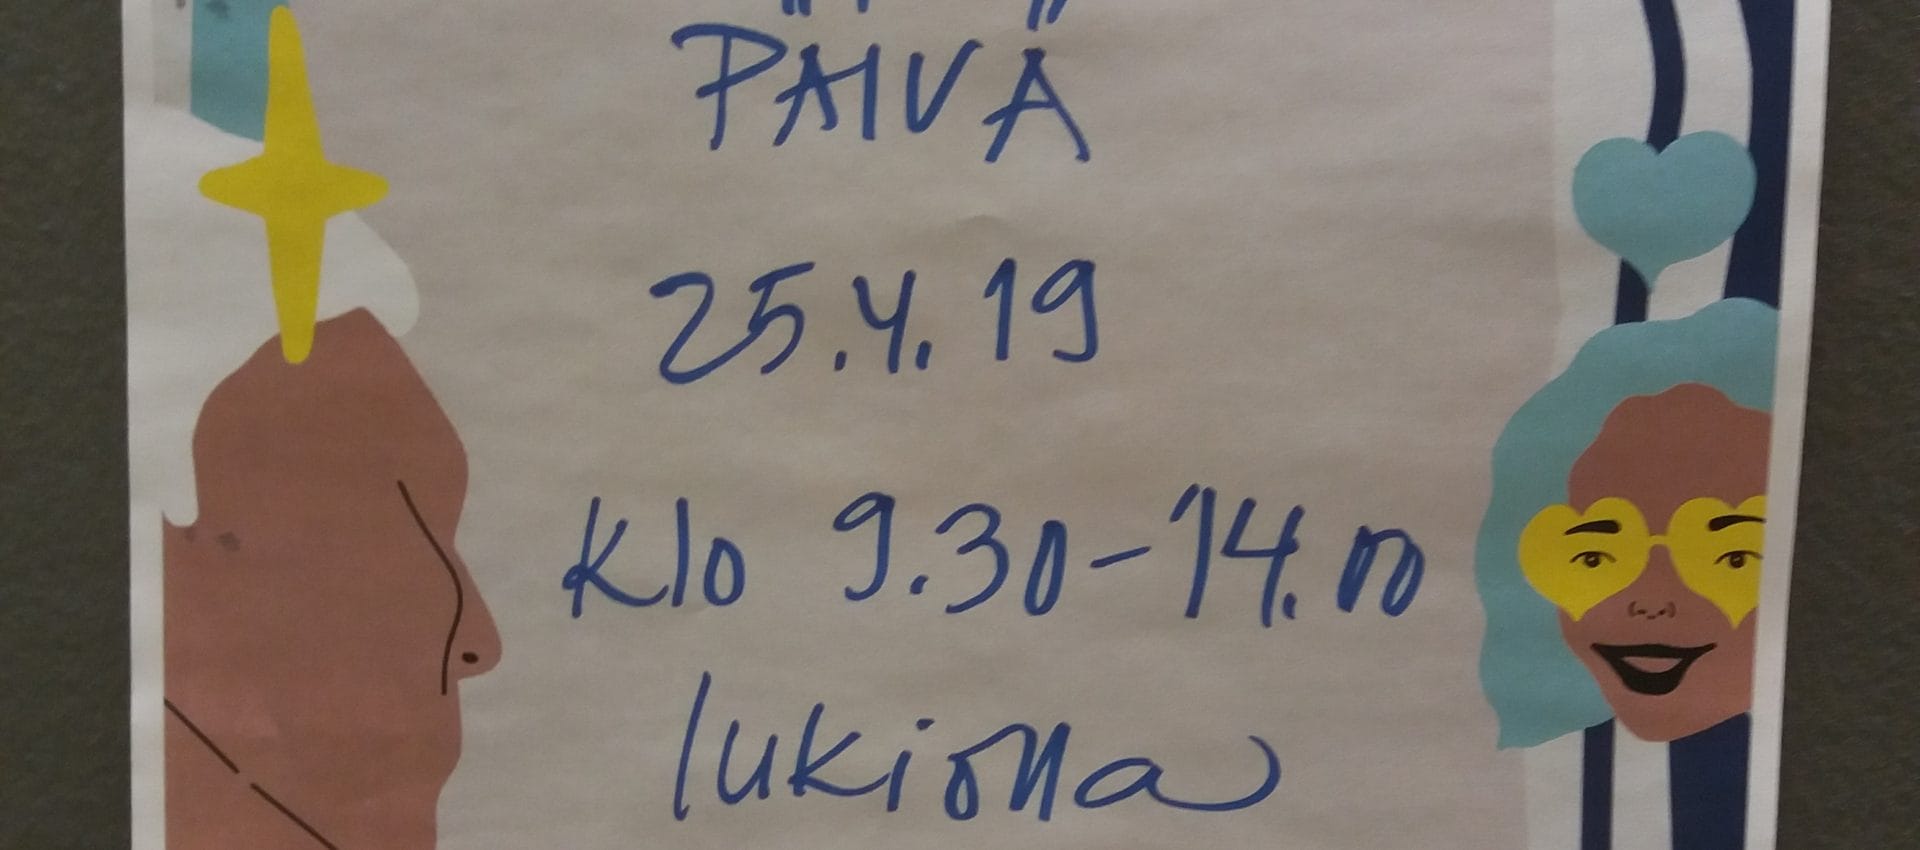 PÄIVÄ
25.4.19
klo 9.30-14.00
lukiolla